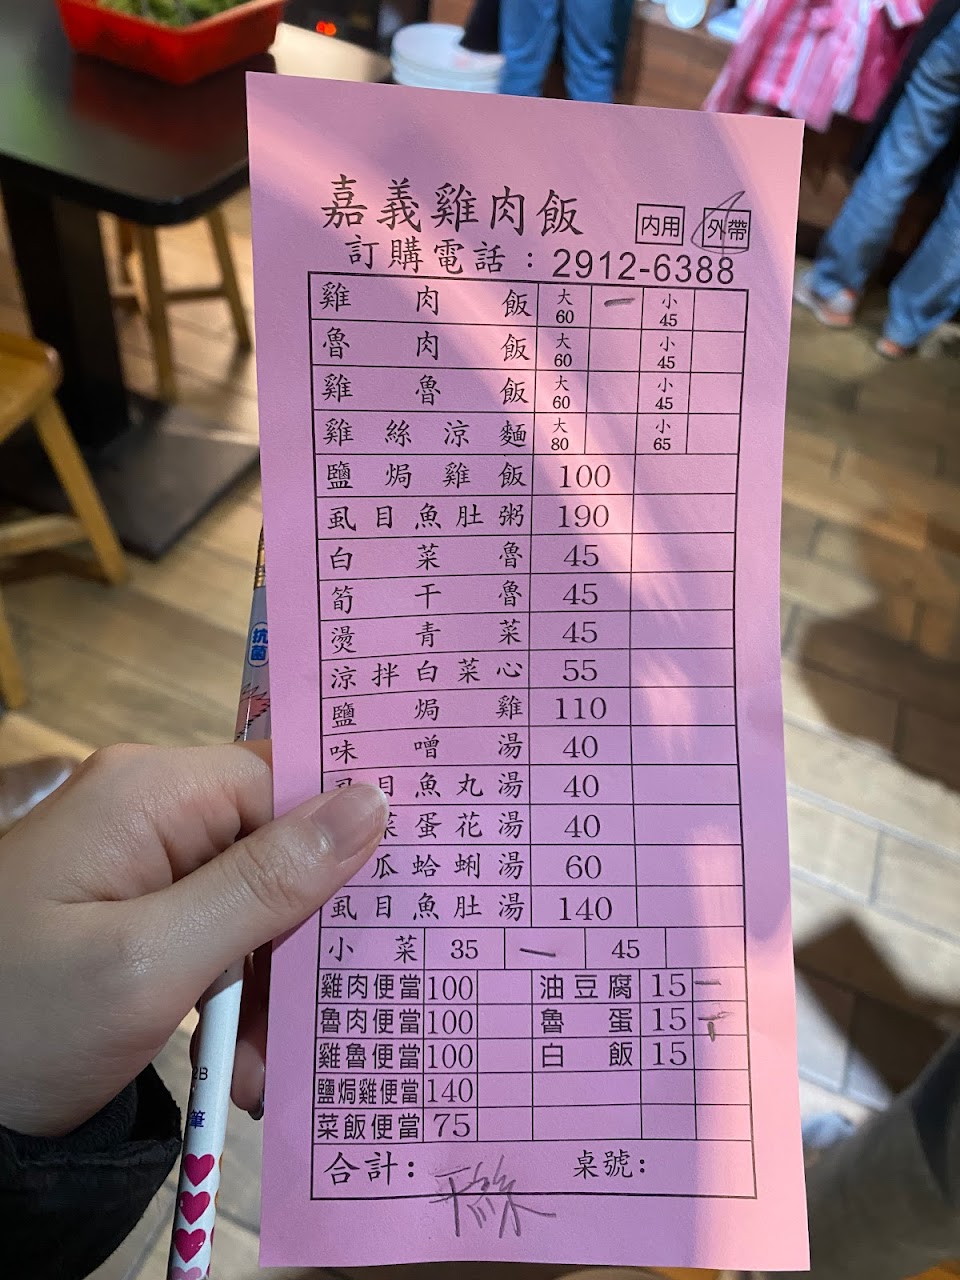 嘉義雞肉飯 內用 外帶
訂購電話：2912-6388
雞肉飯 大60 一 小45
魯肉飯 大60 小45
雞魯飯 大60 小45
雞絲涼麵 大80 小65
鹽焗雞飯 100
虱目魚肚粥 190
白菜魯 45
筍干魯 45
燙青菜 45
涼拌白菜心 55
鹽焗雞 110
味噌湯 40
目魚丸湯 40
菜蛋花湯 40
瓜蛤蜊湯 60
虱目魚肚湯 140
小菜 35 一 45
雞肉便當 100 油豆腐 15 一
魯肉便當 100 魯蛋 15
雞魯便當 100 白飯 15
鹽焗雞便當 140
菜飯便當 75
合計： 桌號：
抗菌
2B
筆